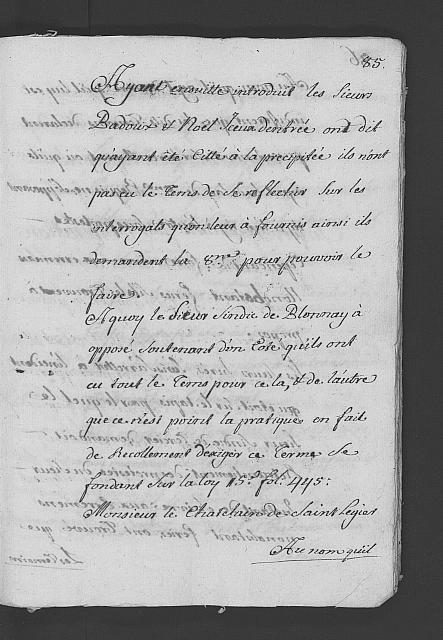 85.
Ayant ensuitte introduit les Sieurs
Badoux et Noël Iceux d'entrée ont dit
qu'ayant été Citté à la precipitée ils n'ont
pas eu le Tems de Se reflechir Sur les
interrogats qu'on leur à fournis ainsi ils
demandent la 8ne pour pouvoir le
faire
A quoy le Sieur Sindic de Blonnay à
opposé Soutenant d'un Coté qu'ils ont
eu tout le Tems pour cela, & de l'autre
que ce n'est point la pratique en fait
de Recollement d'exiger ce Terme Se
fondant Sur la loy 15e fol: 445:
Monsieur le Chatelain de Saint Legier
Au nom qu'il